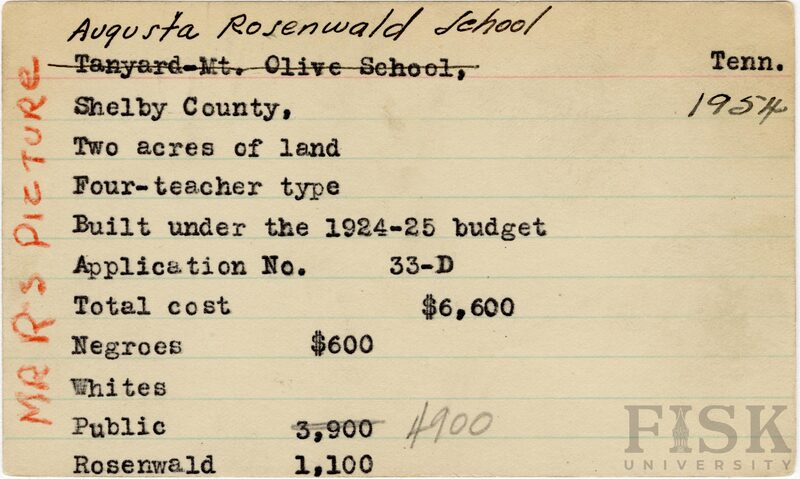 Augusta Rosenwald School
Tanyard-Mt. Olive School, Tenn.
Shelby County, 1954
Two acres of land
Four-teacher type
Built under the 1924-25 budget
Application No. 33-D
Total cost $6,600
Negroes $600
Whites
Public 3,900 4900
Rosenwald 1,100
MR R'S PICTURE
FISK
UNIVERSITY